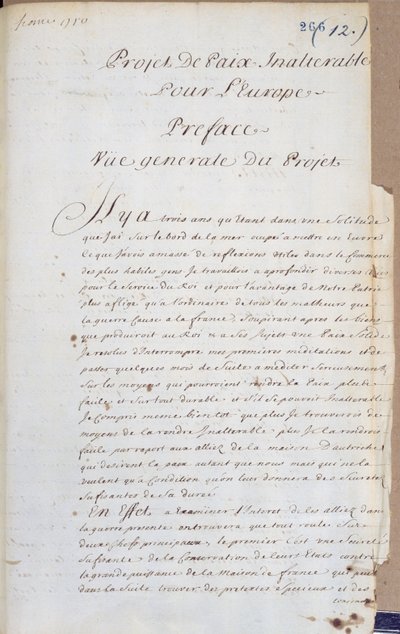 france 1710
266
(12.)
Projet De Paix Inalterable
Pour L'Europe
Preface
Vüe generale Du Projet
Il y a trois ans qu'Etant dans une Solitude
que J'ai Sur le bord de la mer occupé a mettre en Euvre
Ce que J'avois amassé de reflexions utiles dans le Commerce
des plus habiles gens Je travaillois a aprofondir diverses
pour le Service du Roi et pour l'avantage de Notre Patrie
plus affligé qu'a l'ordinaire de tous les malheurs que
la guerre Cause a la france, Soupirant apres les biens
que produiroit au Roi & a Ses Sujets une Paix Solide
Je resolus d'Interrompre mes premieres meditations et de
passer quelques mois de Suite a mediter Serieusement
Sur les moyens qui pouroient rendre la Paix plus
facile et Sur tout durable et s'il Se pouvoit Inalterable
Je Compris meme bientot que plus Je trouverois de
moyens de la rendre Inalterable plus Je la rendrois
facile par raport aux alliez de la maison D'autriche
qui desirent la paix autant que nous mais qui ne la
veulent qu'a Condition qu'on leur donnera des Suretez
Sufisantes de Sa durée
En Effet a Examiner l'Interet de les alliez dans
la guerre presente on trouvera que tout roule Sur
deux Chefs principaux le premier C'est une Sureté
Sufisante de la Conservation de leurs Etats contre
la grande puissance de la Maison de france qui peut
dans la Suite trouver des pretextes specieux et des